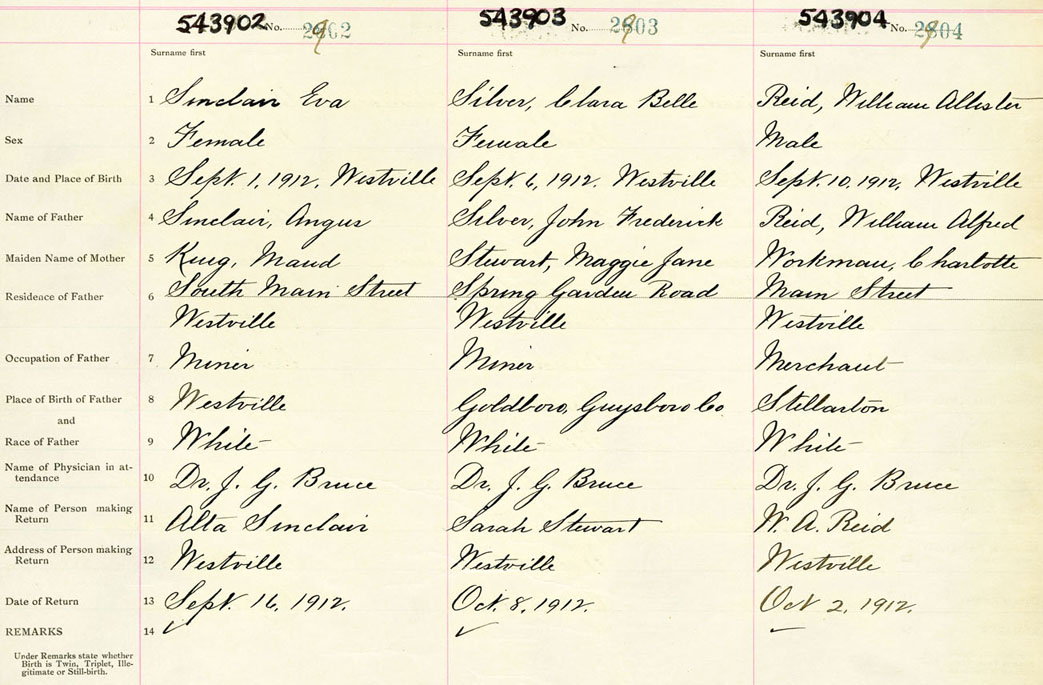 543902 No. 2962 543903 No. 2803 543904 No. 2904
Surname first Surname first Surname first
Name 1 Sinclair Eva Silver, Clara Belle Reid, William Allister
Sex 2 Female Female Male
Date and Place of Birth 3 Sept. 1, 1912, Westville Sept. 6, 1912. Westville Sept. 10, 1912, Westville
Name of Father 4 Sinclair, Angus Silver, John Frederick Reid, William Alfred
Maiden Name of Mother 5 King, Maud Stewart, Maggie Jane Workman, Charlotte
Residence of Father 6 South Main Street Spring Garden Road Main Street
Westville Westville Westville
Occupation of Father 7 Miner Miner Merchant
Place of Birth of Father 8 Westville Goldboro, Guysboro Co. Stellarton
and
Race of Father 9 White White White
Name of Physician in at-
tendance 10 Dr. J. G. Bruce Dr. J. G. Bruce Dr. J. G. Bruce
Name of Person making
Return 11 Alta Sinclair Sarah Stewart W. A. Reid
Address of Person making
Return 12 Westville Westville Westville
Date of Return 13 Sept. 16, 1912. Oct. 8, 1912. Oct 2, 1912.
REMARKS 14
Under Remarks state whether
Birth is Twin, Triplet, Ille-
gitimate or Still-birth.